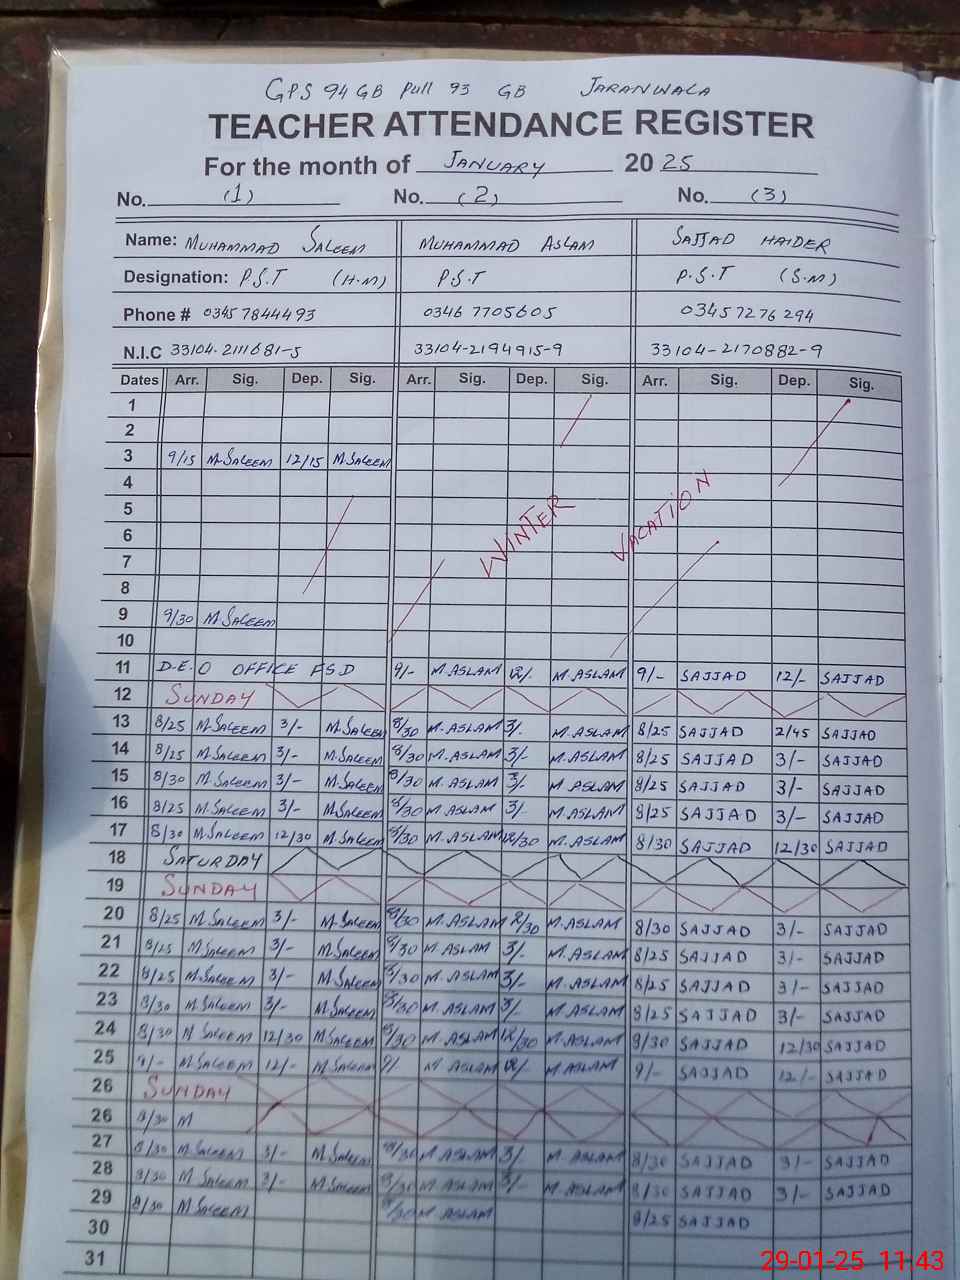 GPS 94 GB Pull 93 GB JARANWALA
TEACHER ATTENDANCE REGISTER
For the month of JANUARY 20 25
No. (1) No. (2) No. (3)
Name: MUHAMMAD SALEEM MUHAMMAD ASLAM SAJJAD HAIDER
Designation: P.S.T (H.M) P.S.T P.S.T (S.M)
Phone # 0345 7844493 0346 7705605 0345 7276 294
N.I.C 33104-2111681-5 33104-2194915-9 33104-2170882-9
Dates Arr. Sig. Dep. Sig. Arr. Sig. Dep. Sig. Arr. Sig. Dep. Sig.
1
2
3 9/15 M.SALEEM 12/15 M.SALEEM
4
5
WINTER VACATION
6
7
8
9 9/30 M.SALEEM
10
11 D.E.O OFFICE FSD 9/- M.ASLAM 12/- M.ASLAM 9/- SAJJAD 12/- SAJJAD
12 SUNDAY
13 8/25 M.SALEEM 3/- M.SALEEM 8/30 M.ASLAM 3/- M.ASLAM 8/25 SAJJAD 2/45 SAJJAD
14 8/25 M.SALEEM 3/- M.SALEEM 8/30 M.ASLAM 3/- M.ASLAM 8/25 SAJJAD 3/- SAJJAD
15 8/30 M.SALEEM 3/- M.SALEEM 8/30 M.ASLAM 3/- M.ASLAM 8/25 SAJJAD 3/- SAJJAD
16 8/25 M.SALEEM 3/- M.SALEEM 8/30 M.ASLAM 3/- M.ASLAM 8/25 SAJJAD 3/- SAJJAD
17 8/30 M.SALEEM 12/30 M.SALEEM 8/30 M.ASLAM 12/30 M.ASLAM 8/30 SAJJAD 12/30 SAJJAD
18 SATURDAY
19 SUNDAY
20 8/25 M.SALEEM 3/- M.SALEEM 8/30 M.ASLAM M.ASLAM 8/30 SAJJAD 3/- SAJJAD
21 8/25 M.SALEEM 3/- M.SALEEM 8/30 M.ASLAM 3/- M.ASLAM 8/25 SAJJAD 3/- SAJJAD
22 8/25 M.SALEEM 3/- M.SALEEM 8/30 M.ASLAM 3/- M.ASLAM 8/25 SAJJAD 3/- SAJJAD
23 8/30 M.SALEEM 3/- M.SALEEM 8/30 M.ASLAM 3/- M.ASLAM 8/25 SAJJAD 3/- SAJJAD
24 8/30 M SALEEM 12/30 M.SALEEM 8/30 M.ASLAM 12/30 M.ASLAM 8/30 SAJJAD 12/30 SAJJAD
25 9/- M.SALEEM 12/- M.SALEEM 9/- M.ASLAM 12/- M.ASLAM 9/- SAJJAD 12/- SAJJAD
26 SUNDAY
26 8/30 M
27 8/30 M.SALEEM 3/- M.SALEEM 8/30 M ASLAM 3/- M ASLAM 8/30 SAJJAD 3/- SAJJAD
28 8/30 M SALEEM 3/- M SALEEM 8/30 M ASLAM 3/- M ASLAM 8/30 SAJJAD 3/- SAJJAD
29 8/30 M SALEEM 8/30 M ASLAM 8/25 SAJJAD
30
31
29-01-25 11:43